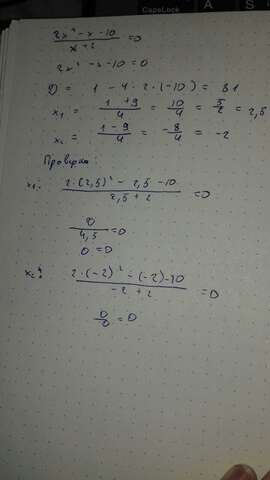 CapsLock A S
(2x² - x - 10)/(x + 2) = 0
2x² - x - 10 = 0
D = 1 - 4 · 2 · (-10) = 81
x₁ = (1 + 9)/4 = 10/4 = 5/2 = 2,5
x₂ = (1 - 9)/4 = -8/4 = -2
Проверка:
x₁: (2 · (2,5)² - 2,5 - 10)/(2,5 + 2) = 0
0/4,5 = 0
0 = 0
x₂: (2 · (-2)² - (-2) - 10)/(-2 + 2) = 0
0/0 = 0